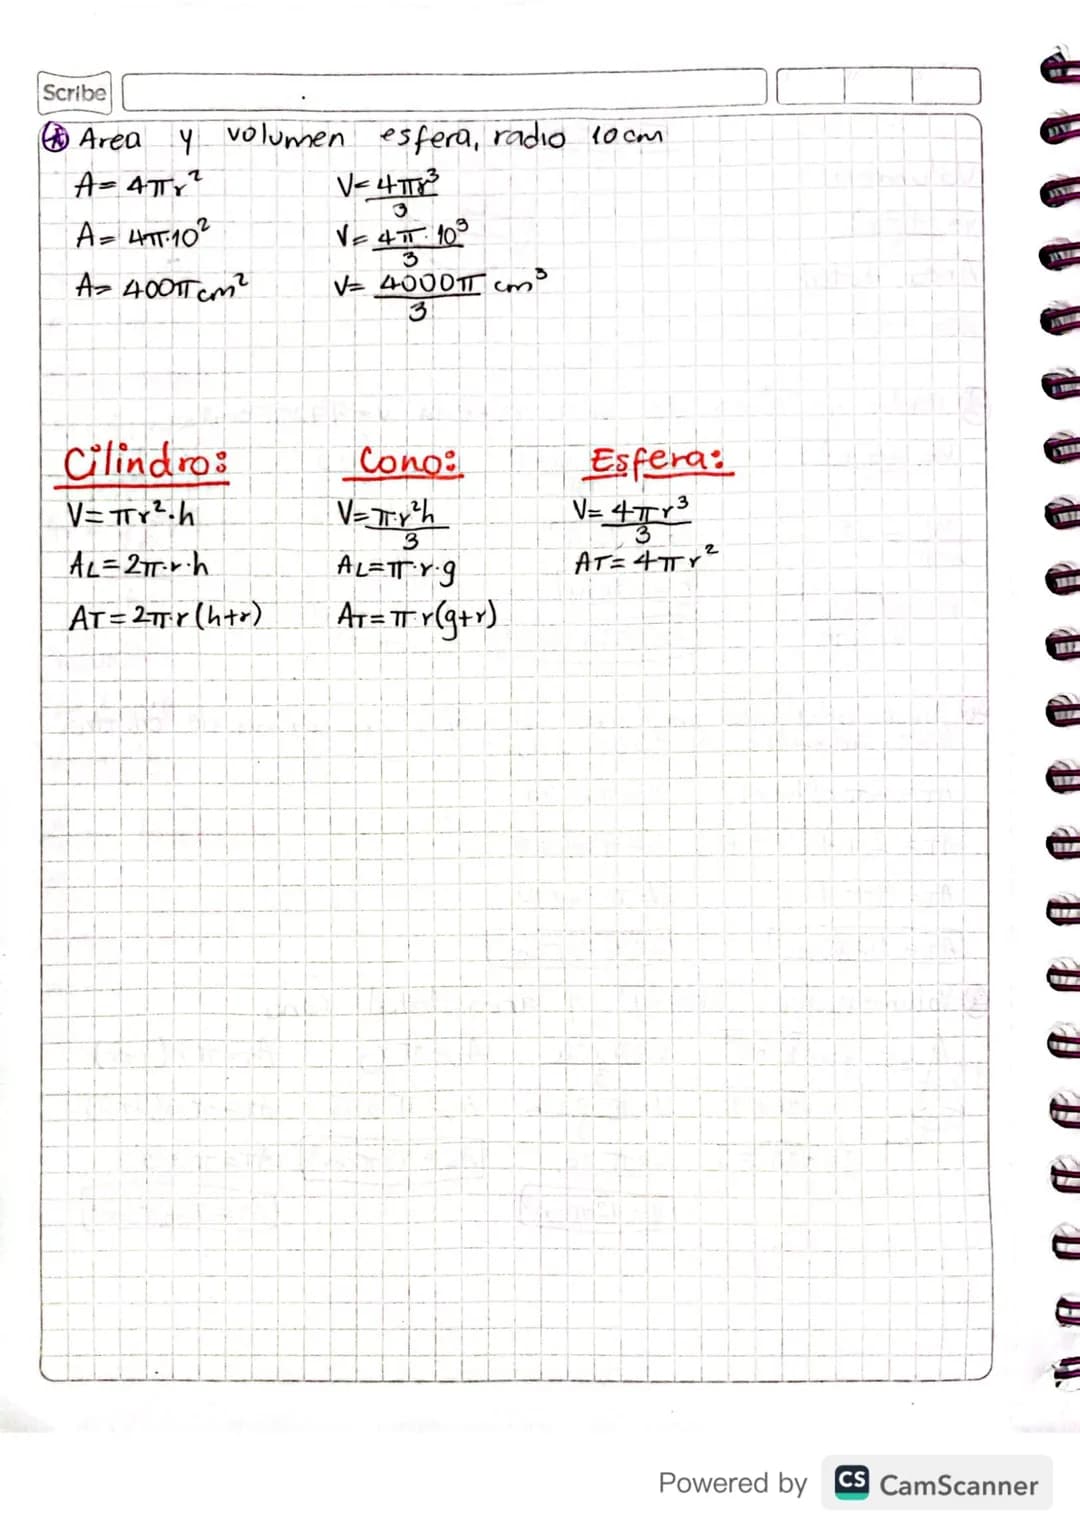 Scribe
Area y volumen esfera, radio 10cm
A= 4πr²
A= 4π·10²
A= 400π cm²
V= 4πr³
3
V= 4π·10³
3
V= 4000π cm³
3
Cilindro:
V= πr²·h
AL= 2π·r·h
AT= 2π·r(h+r)
Cono:
V= π·r²h
3
AL= π·r·g
AT= π r(g+r)
Esfera:
V= 4πr³
3
AT= 4πr²
Powered by CS CamScanner